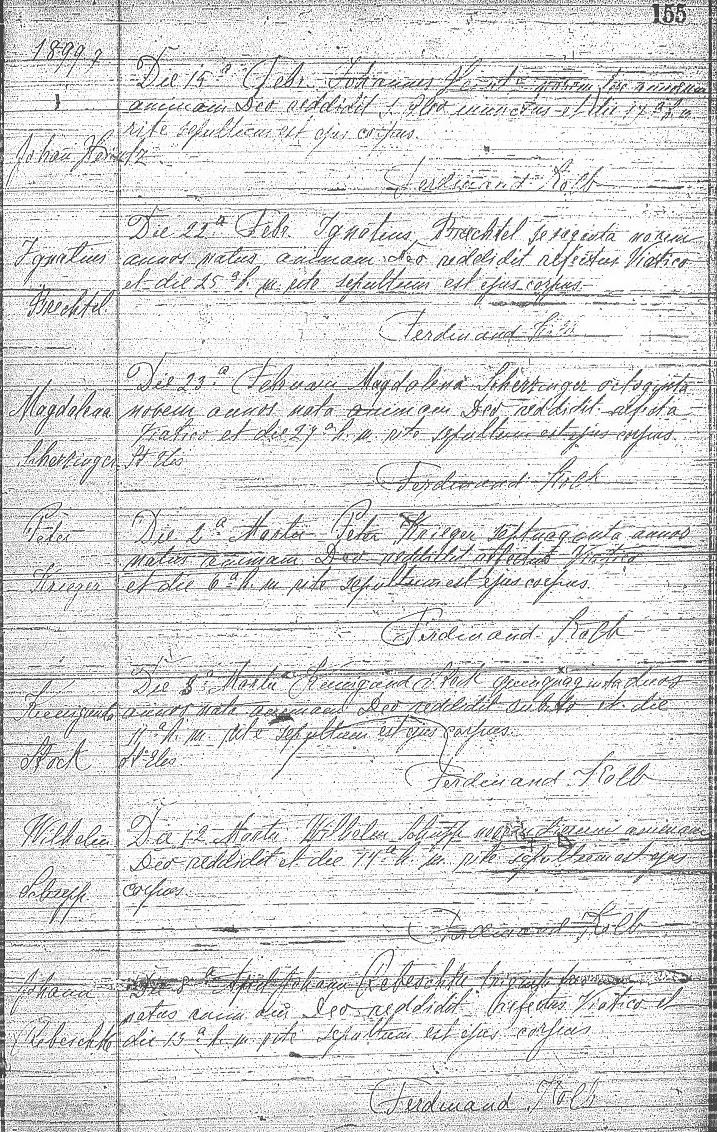 155
1899
Die 15ª Febr. Johannes
animam Deo reddidit S. Oleo munctus et die 17ª h. m.
rite sepultum est ejus corpus.
Johan
Ferdinand Kolb
Die 22ª Febr. Ignatius Brechtel sexaginta novem
Ignatius annos natus animam Deo reddidit refectus Viatico
et die 25ª h. m. rite sepultum est ejus corpus.
Brechtel
Ferdinand Kolb
Die 23ª Februarii Magdalena Scherzinger octoginta
Magdalena novem annos nata animam Deo reddidit refecta
Viatico et die 27ª h. m. rite sepultum est ejus corpus.
Scherzinger St Elis
Ferdinand Kolb
Peter Die 2ª Martii Peter Krieger septuaginta annos
natus animam Deo reddidit refectus Viatico
Krieger et die 6ª h. m. rite sepultum est ejus corpus.
Ferdinand Kolb
Die 8ª Martii Kunigund Stock quinquaginta duos
annos nata animam Deo reddidit subito et die
11ª h. m. rite sepultum est ejus corpus.
Stock St Elis
Ferdinand Kolb
Wilhelm Die 12 Martii Wilhelm Schupp animam
Deo reddidit et die 14ª h. m. rite sepultum est ejus
Schupp corpus.
Ferdinand Kolb
Johann Die 8ª April Johann Rebeschke triginta
natus animam Deo reddidit refectus Viatico et
Rebeschke die 13ª h. m. rite sepultum est ejus corpus
Ferdinand Kolb